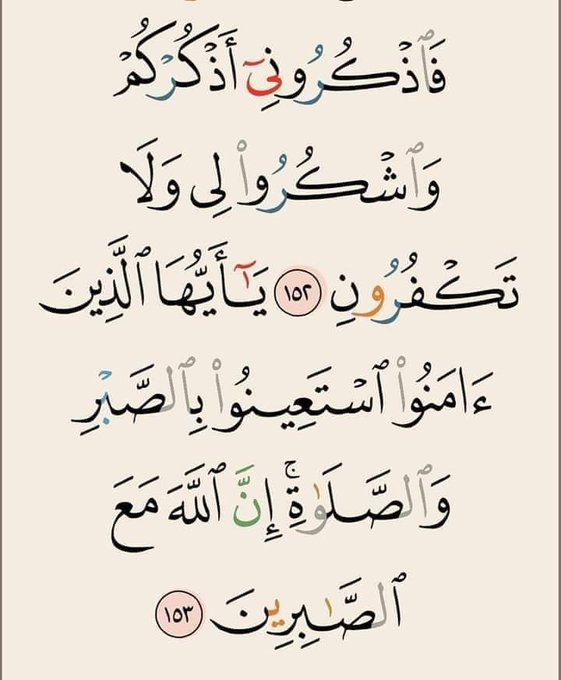 فَٱذْكُرُونِىٓ أَذْكُرْكُمْ
وَٱشْكُرُوا۟ لِى وَلَا
تَكْفُرُونِ ١٥٢ يَـٰٓأَيُّهَا ٱلَّذِينَ
ءَامَنُوا۟ ٱسْتَعِينُوا۟ بِٱلصَّبْرِ
وَٱلصَّلَوٰةِ ۚ إِنَّ ٱللَّهَ مَعَ
ٱلصَّـٰبِرِينَ ١٥٣